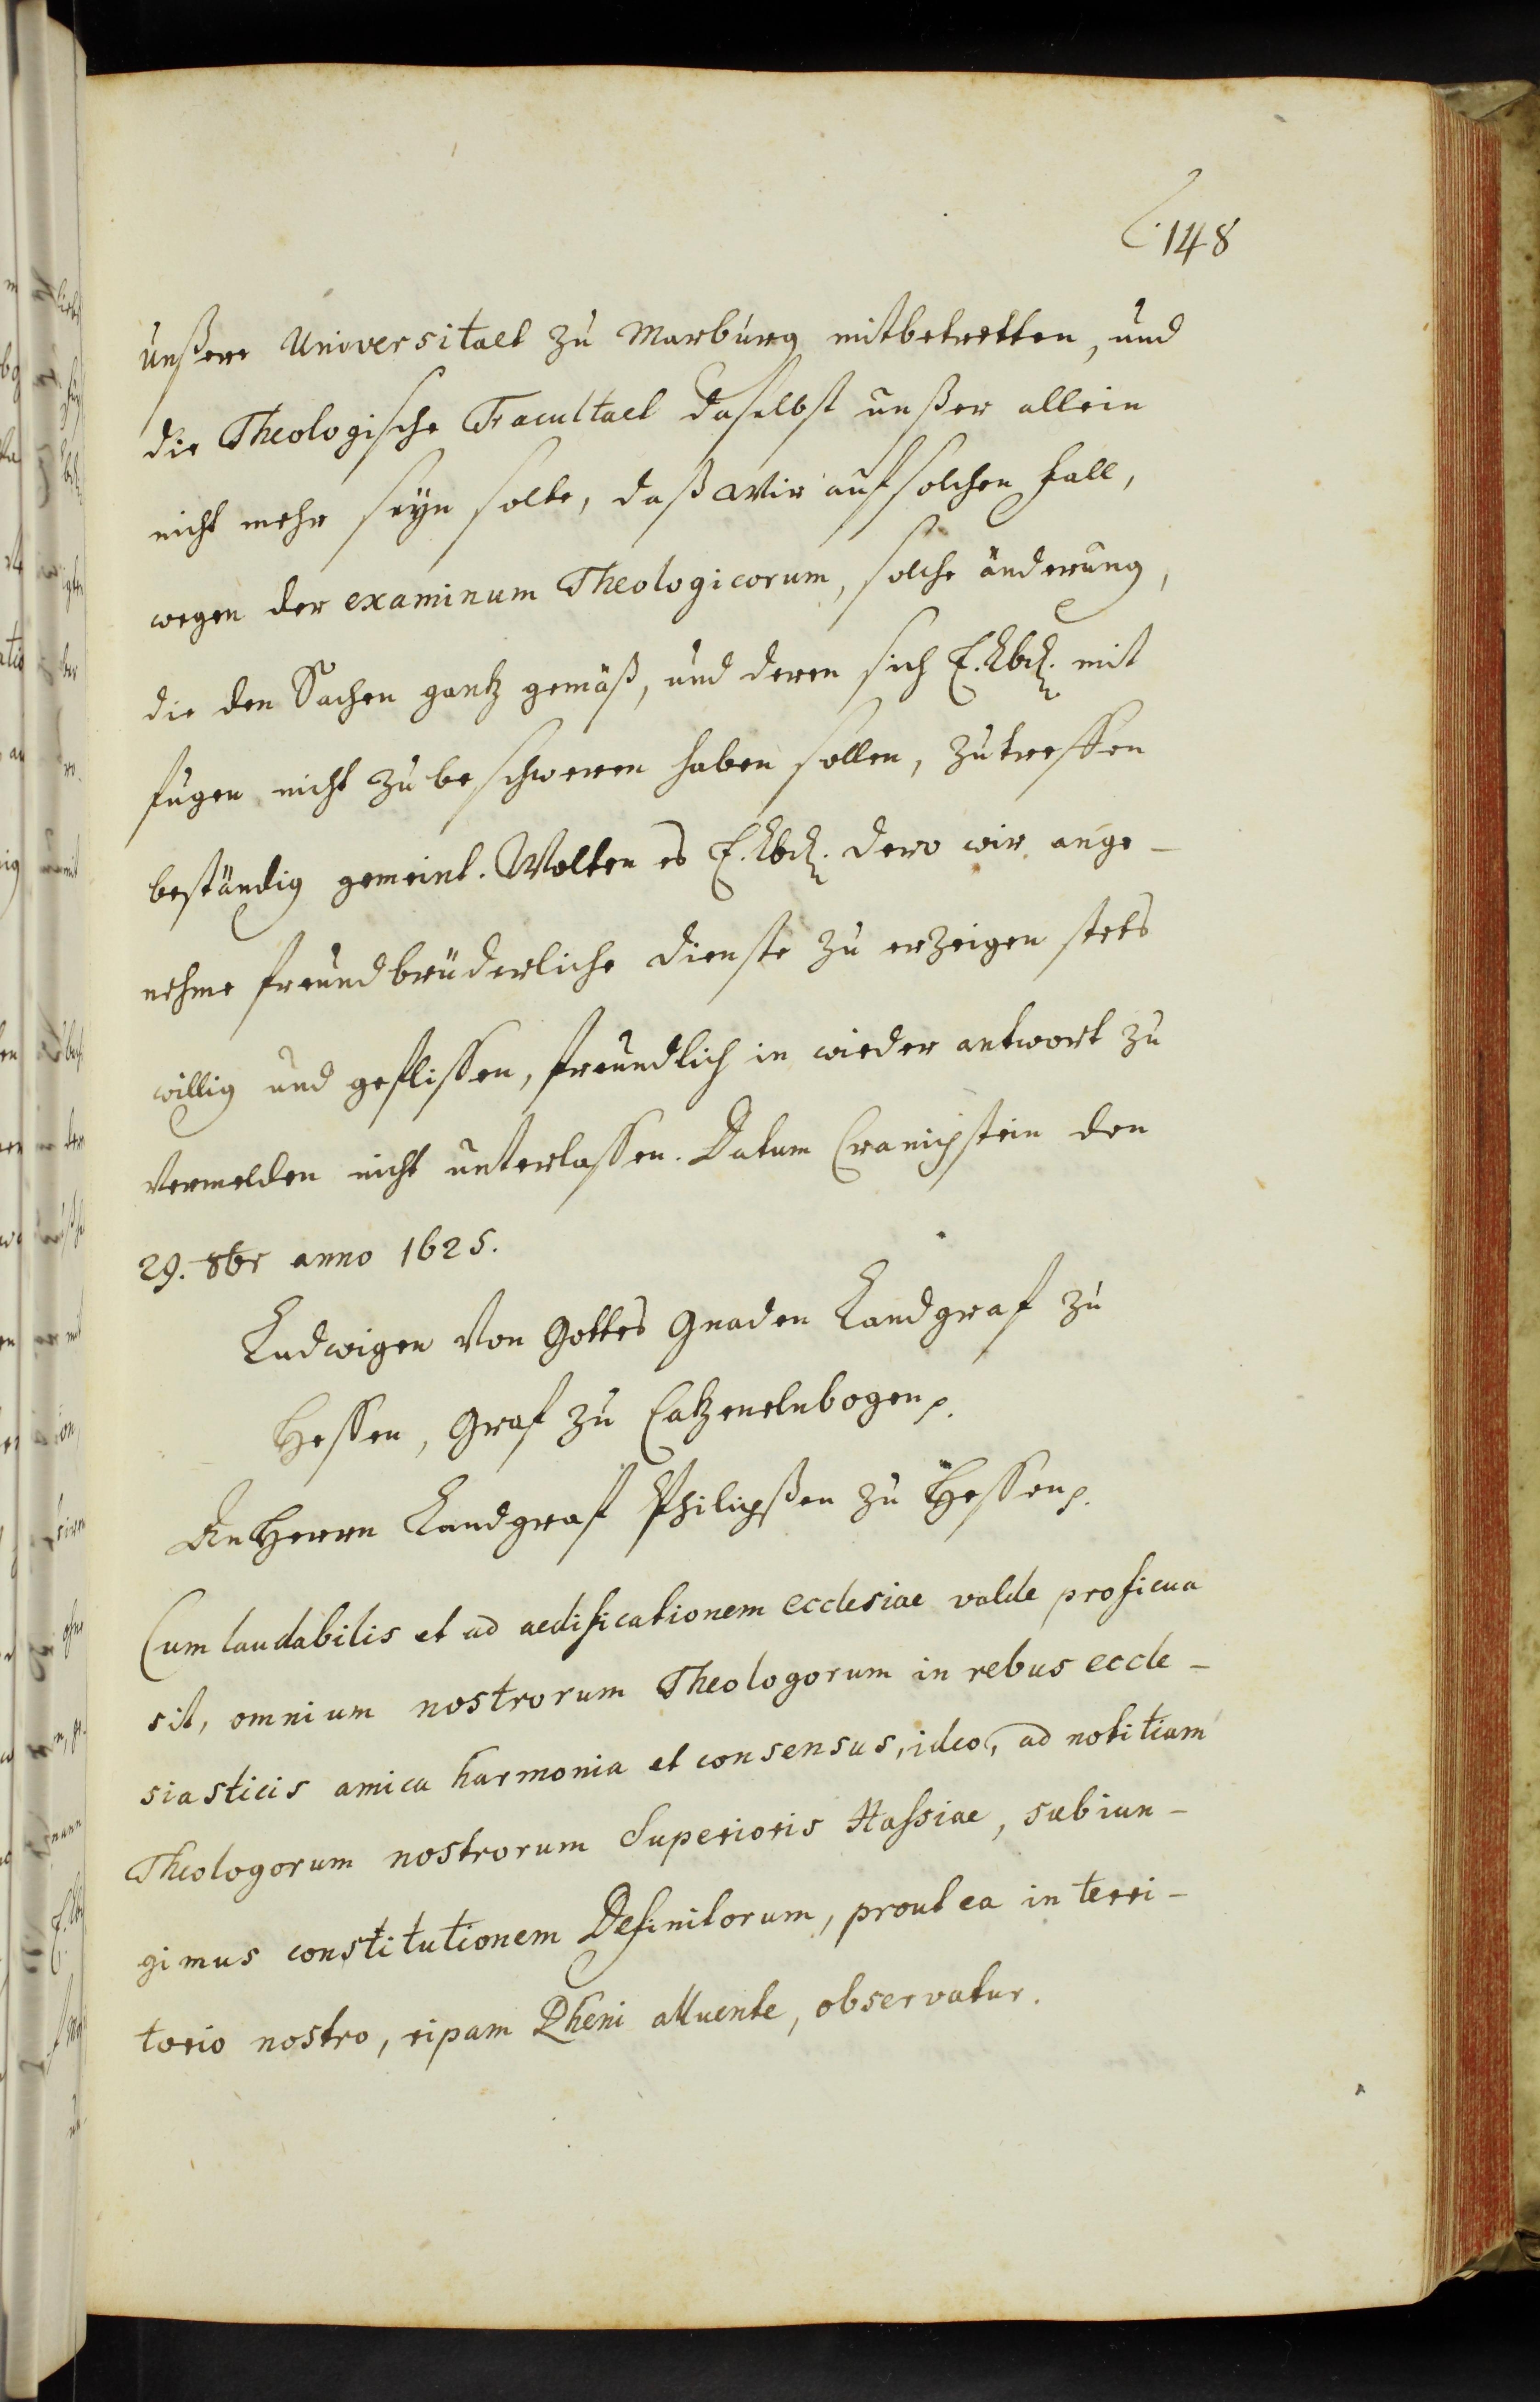 148
unßere Universitaet zu Marburg mitbetretten, und
die Theologische Facultaet daselbst unßer allein
nicht mehr seyn solte, daß Wir auf solchen fall,
wegen der examinum Theologicorum, solche änderung,
die den Sachen gantz gemäß, und deren sich E. Lbd. mit
fugen nicht zu beschweren haben sollen, zutreffen
beständig gemeint. Wolten es E. Lbd. dero wir ange-
nehme freundbrüderliche dienste zu erzeigen stets
willig und geflissen, freundlich in wieder antwort zu
vermelden nicht unterlassen. Datum Cranichstein den
29. 8br anno 1625.
Ludwigen Von Gottes Gnaden Landgraf zu
Hessen, Graf zu Catzenelnbogen p.
An Herrn Landgraf Philipßen zu Hessen p.
Cum laudabilis et ad aedificationem ecclesiae valde proficua
sit, omnium nostrorum Theologorum in rebus eccle-
siasticis amica harmonia et consensus, ideo, ad notitiam
Theologorum nostrorum Superioris Hassiae, subiun-
gimus constitutionem Definitorum, prout ea in terri-
torio nostro, ripam Rheni alluente, observatur.